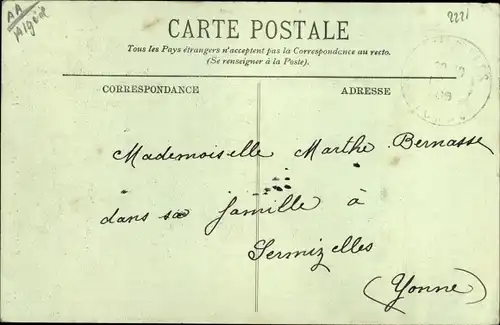 AA
Algér
2221
CARTE POSTALE
Tous les Pays étrangers n'acceptent pas la Correspondance au recto.
(Se renseigner à la Poste).
CORRESPONDANCE
ADRESSE
Mademoiselle Marthe Bernasse
dans sa famille à
Sermizelles
(Yonne)